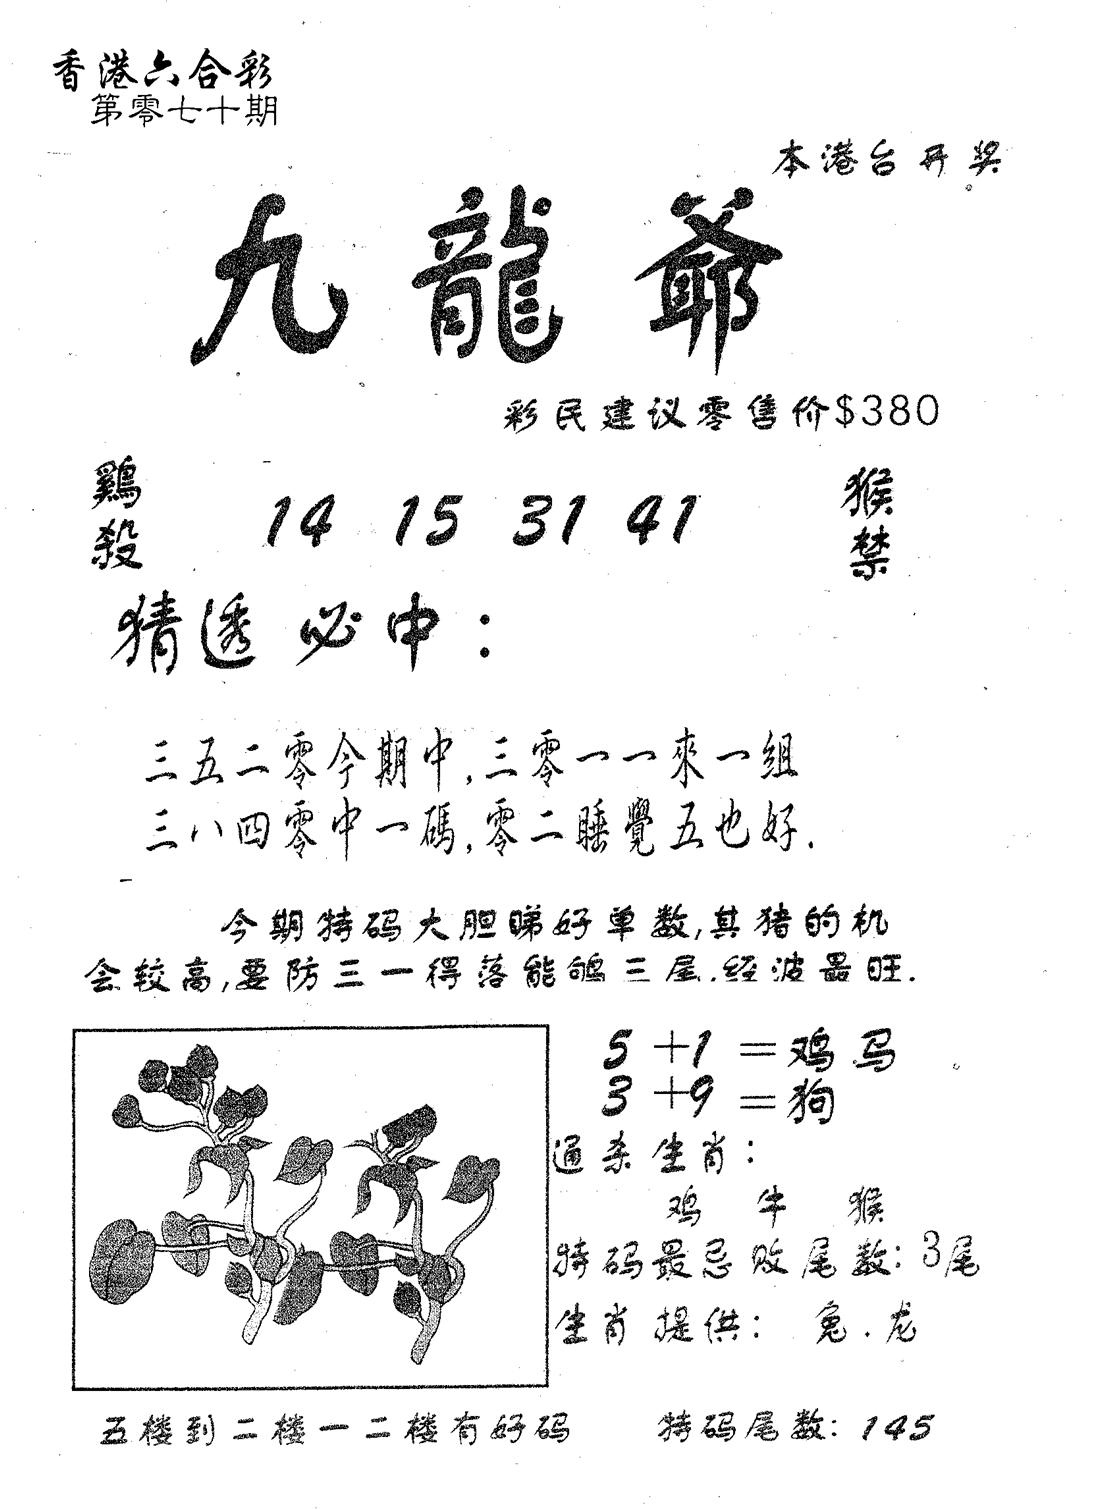 香港六合彩
第零七十期
本港台开奖
九龍爺
彩民建议零售价$380
鷄殺
14 15 31 41
猴禁
猜透必中：
三五二零今期中,三零一一來一組
三八四零中一碼,零二睡覺五也好.
今期特码大胆睇好单数,其猪的机
会较高,要防三一得落能鸲三尾.经波最旺.
5+1=鸡马
3+9=狗
通杀生肖：
鸡 牛 猴
特码最忌败尾数：3尾
生肖提供： 兔.龙
五楼到二楼一二楼有好码
特码尾数：145